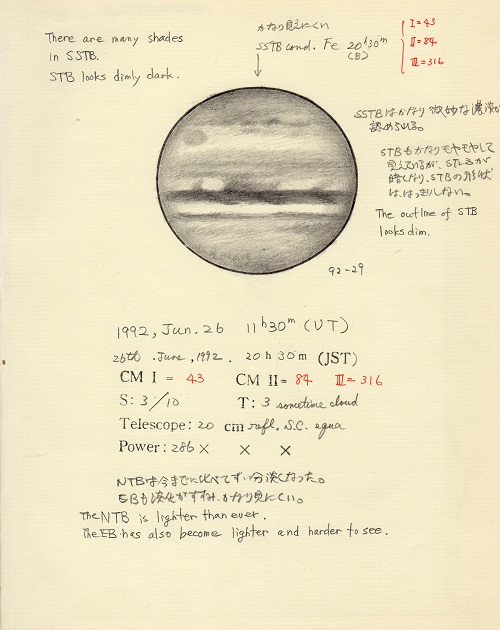 There are many shades
in SSTB.
STB looks dimly dark.
かなり見えにくい
SSTB cond. Fe 20h30m
(B)
I = 43
II = 84
III = 316
SSTBはかなり微妙な濃淡が
認められる。
STBもかなりモヤモヤして
見えているが、STrZが
暗くなり、STBの形状
は、はっきりしない。
The outline of STB
looks dim.
92-29
1992, Jun. 26 11h30m (UT)
26th .June, 1992. 20h30m (JST)
CM I = 43 CM II = 84 III = 316
S: 3/10 T: 3 sometime cloud
Telescope: 20 cm refl. S.C. equa
Power: 286 × × ×
NTBは今までに比べてずい分淡くなった。
EBも淡化がすすみ、かなり見にくい。
The NTB is lighter than ever.
The EB has also become lighter and harder to see.